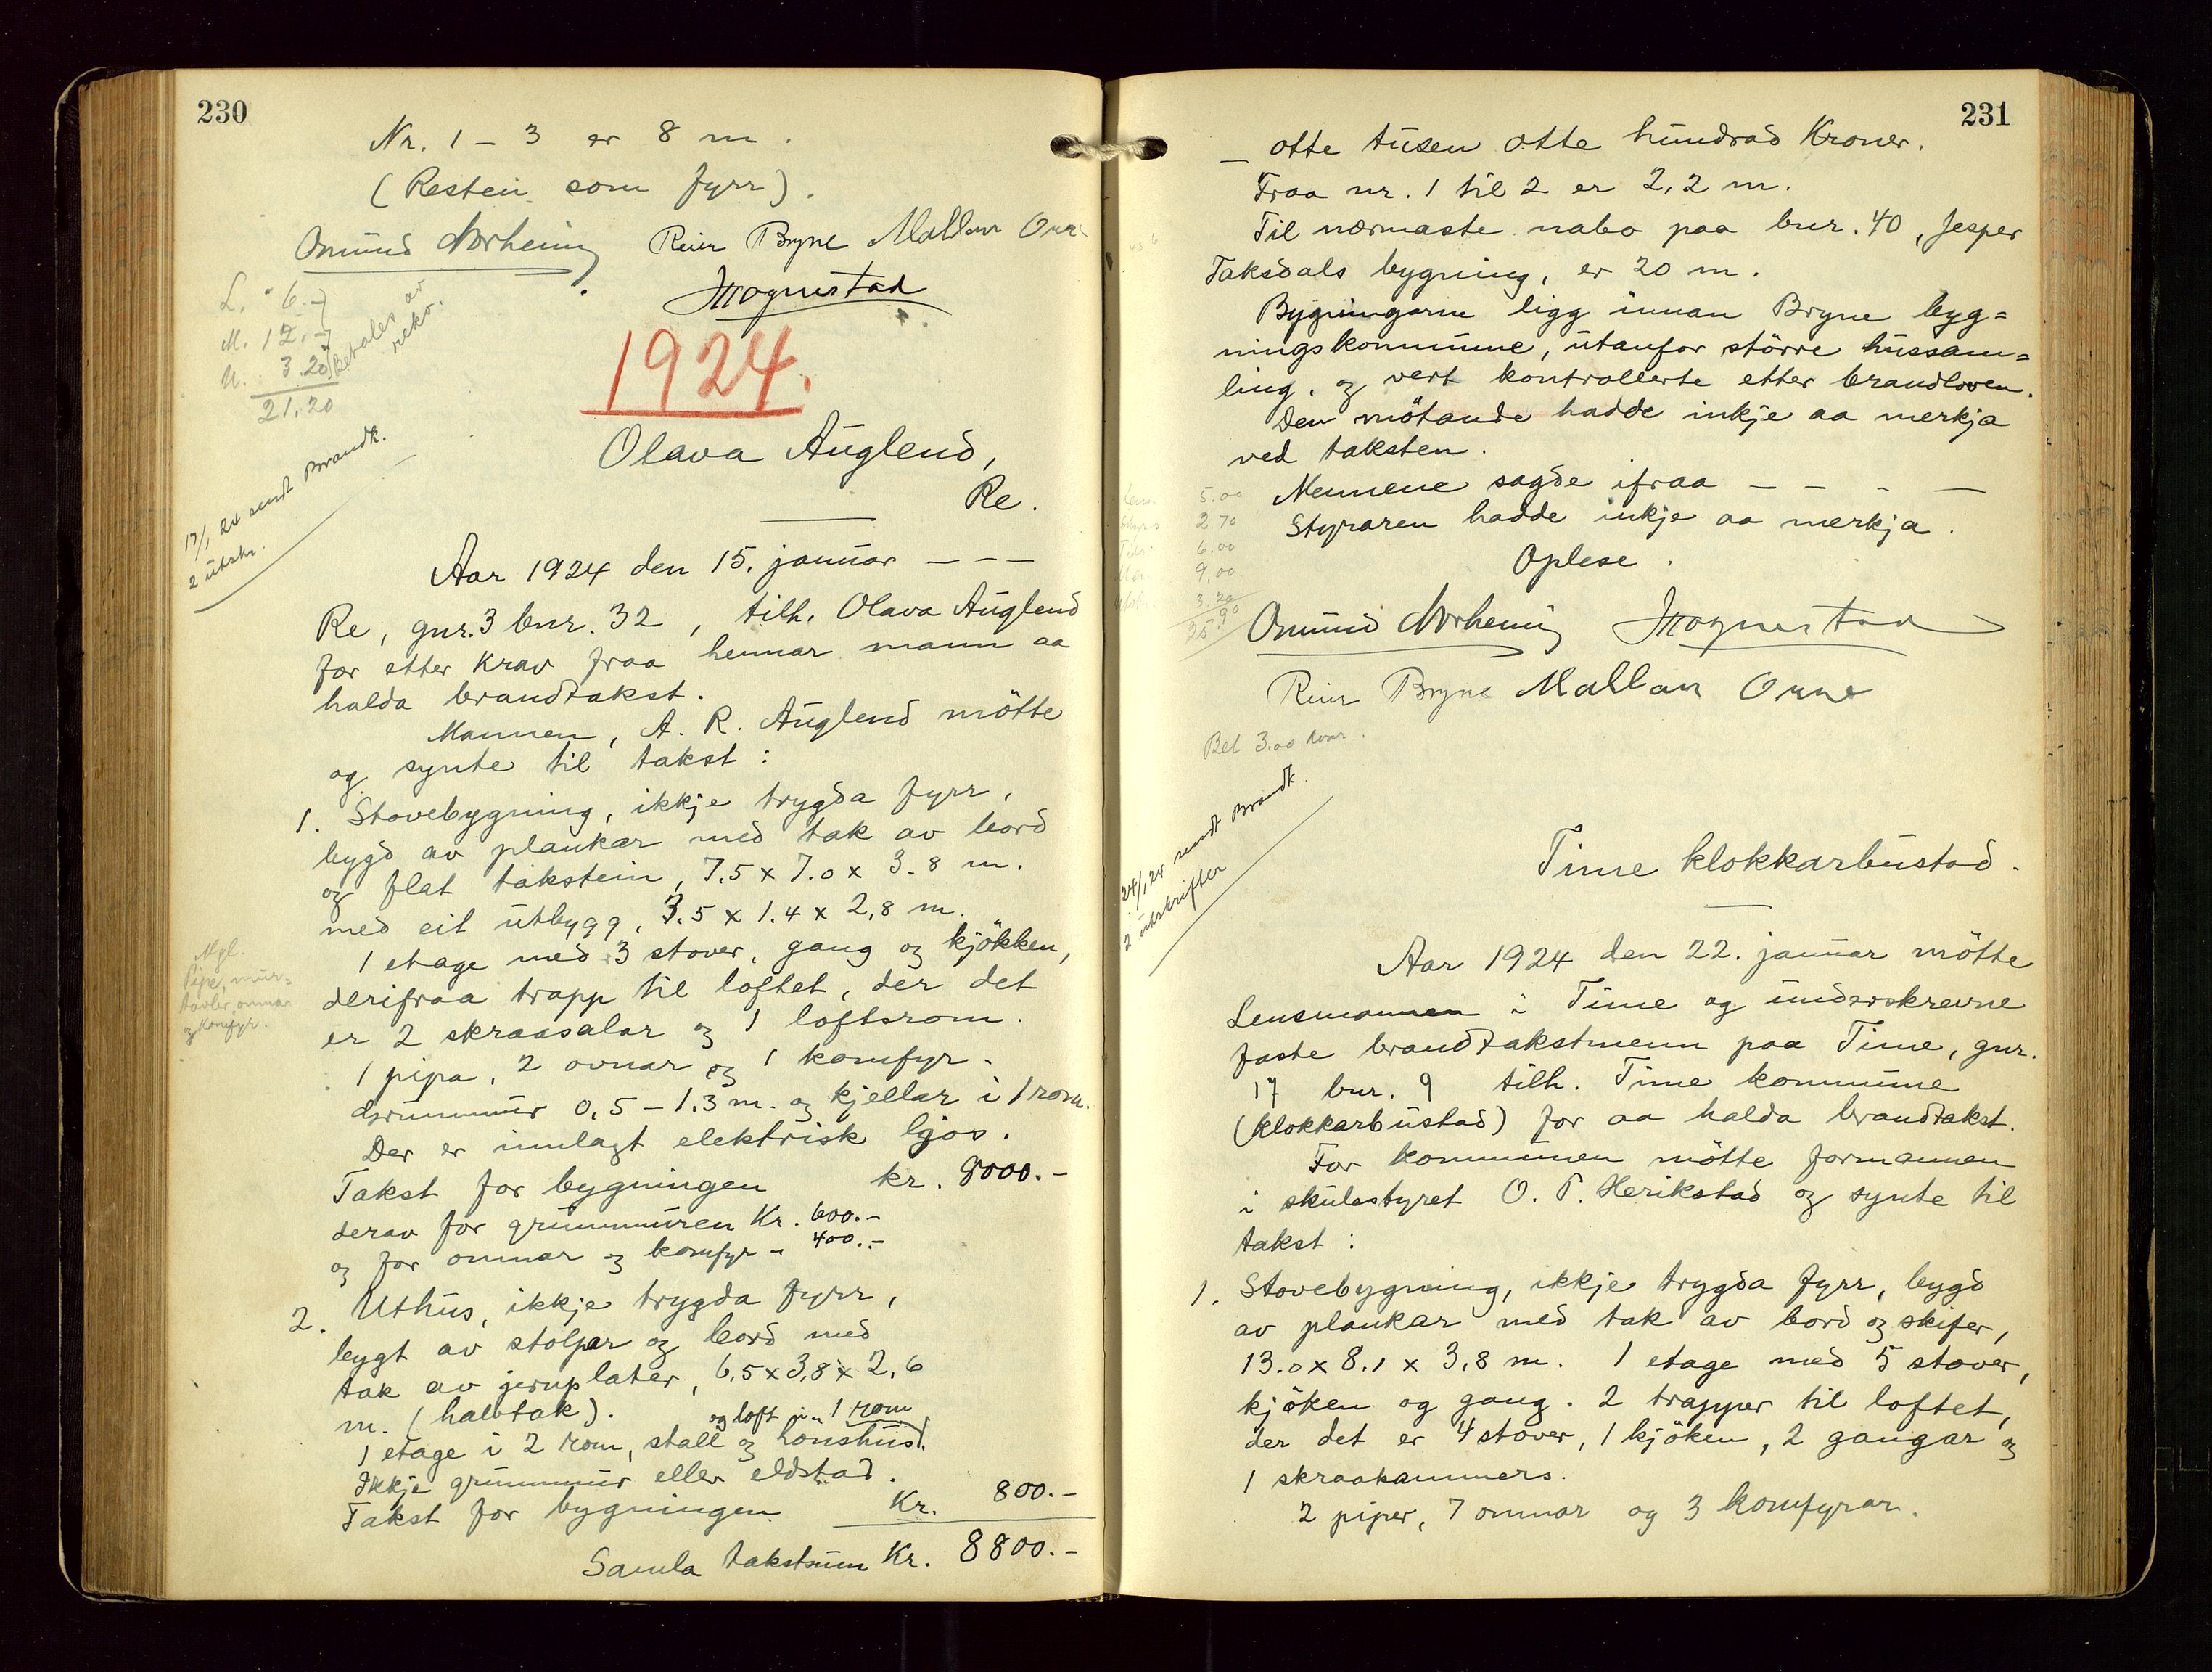 230
Nr. 1 – 3 er 8 m.
(Resten som fyrr).
Omund Norheim Reier Bryne Mallan Orre
J Mognestad
L. " 6.-
M. 12.-
U. 3.20
21.20
Betales av rekv.
1924.
17/1 24 sendt Brandk.
2 utskr.
Olava Auglend,
Re.
Aar 1924 den 15. januar – – –
Re, gnr. 3 bnr. 32, tilh. Olava Auglend
for etter krav fraa hennar mann aa
halda brandtakst.
Mannen, A. R. Auglend mötte
og synte til takst:
1. Stovebygning, ikkje trygda fyrr,
bygd av plankar med tak av bord
og flat takstein, 7.5 x 7.0 x 3.8 m.
med eit utbygg, 3.5 x 1.4 x 2,8 m.
1 etage med 3 stover, gang og kjökken,
derifraa trapp til loftet, der det
er 2 skraasalar og 1 loftsrom.
Mgl.
Pipe, mur-
tavler, omnar
og komfyr.
1 pipa, 2 ovnar og 1 komfyr.
Grunnmur 0,5 – 1,3 m. og kjellar i 1 rom.
Der er innlagt elektrisk ljos.
Takst for bygningen kr. 8000.-
derav for grunnmuren Kr. 600.-
og for omnar og komfyr " 400.-
2. Uthus, ikkje trygda fyrr,
bygt av stolpar og bord med
tak av jernplater, 6,5 x 3,8 x 2,6
m. (halvtak).
og loft i 1 rom
1 etage i 2 rom, stall og honshus.
Ikkje grunnmur eller eldstad.
Takst for bygningen Kr. 800.-
Samla takstsum Kr. 8800.-
231
– otte tusen otte hundrad Kroner.
Fraa nr. 1 til 2 er 2,2 m.
Til nærmaste nabo paa bnr. 40, Jesper
Taksdals bygning, er 20 m.
Bygningarne ligg innan Bryne byg=
ningskommune, utanfor större hussam=
ling, og vert kontrollerte etter brandloven.
Den mötande hadde inkje aa merkja
ved taksten.
Mennene sagde ifraa – – – –
Styraren hadde inkje aa merkja.
Oplese.
5.00
2.70
6.00
9.00
3.20
25.90
Omund Norheim J Mognestad
Reier Bryne Mallan Orre
Bet 3.00 kvar.
24/1 24 sendt Brandk.
2 utskrifter
Time klokkarbustad.
Aar 1924 den 22. januar mötte
Lensmannen i Time og underskrevne
faste brandtakstmenn paa Time, gnr.
17 bnr. 9 tilh. Time kommune
(klokkarbustad) for aa halda brandtakst.
For kommunen mötte formannen
i skulestyret O. T. Herikstad og synte til
takst:
1. Stovebygning, ikkje trygda fyrr, bygd
av plankar med tak av bord og skifer,
13.0 x 8.1 x 3,8 m. 1 etage med 5 stover,
kjöken og gang. 2 trapper til loftet,
der det er 4 stover, 1 kjöken, 2 gangar og
1 skraakammers.
2 piper, 7 omnar og 3 komfyrar.